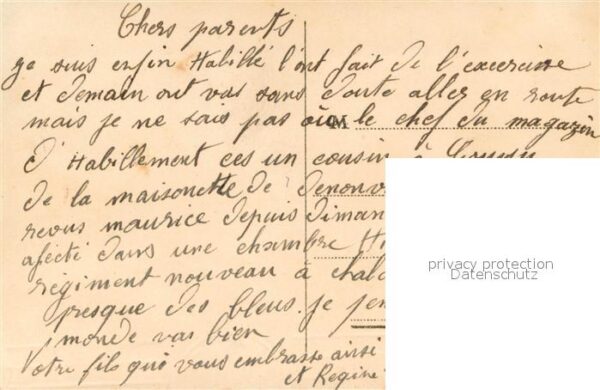 Chers parents
je suis enfin Habillé l'ont fait de l'excercisse
et demain ont vas sans doute aller en route
mais je ne sais pas où le chef du magazin
d'Habillement ces un cousin à
de la maisonette de
revus maurice depuis diman
afecté dans une chambre
régiment nouveau à
presque des bleus. je
monde vas bien
Votre fils qui vous embrasse ainsi
et Regine
privacy protection
Datenschutz